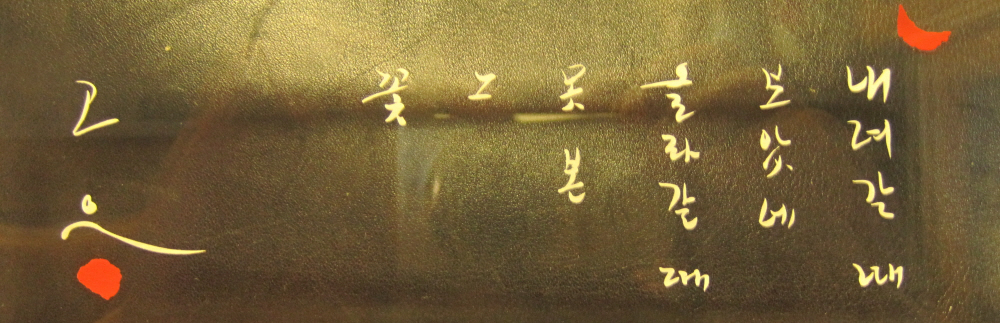 내려갈 때
보았네
올라갈 때
못 본
그
꽃
고은